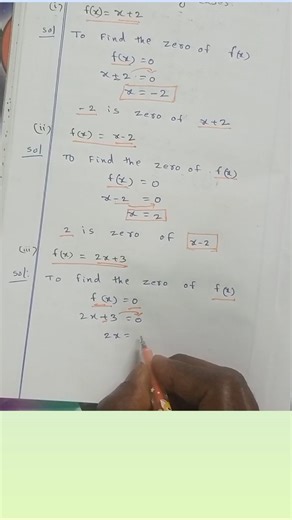 (i) f(x) = x+2
Sol To Find the zero of f(x)
f(x) = 0
x+2 = 0
x = -2
-2 is zero of x+2
(ii) f(x) = x-2
Sol To Find the zero of f(x)
f(x) = 0
x-2 = 0
x = 2
2 is zero of x-2
(iii) f(x) = 2x+3
Sol: To find the zero of f(x)
f(x) = 0
2x+3 = 0
2x =